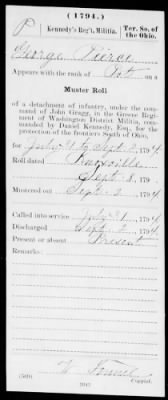 (1794.)
P | Kennedy's Reg't, Militia. | Ter. So. of the Ohio.
George Pierce
Appears with the rank of Pvt on a
Muster Roll
of a detachment of infantry, under the command
of John Gragg, in the Greene Regiment
of Washington District Militia, commanded
by Daniel Kennedy, Esq., for
the protection of the frontiers South of Ohio,
for July 1 to Sept 2, 1794
Roll dated Knoxville
Sept 8, 1794
Mustered out Sept 2, 1794
Called into service July 1, 1794
Discharged Sept 2, 1794
Present or absent Present
Remarks:
(569)
Copyist.